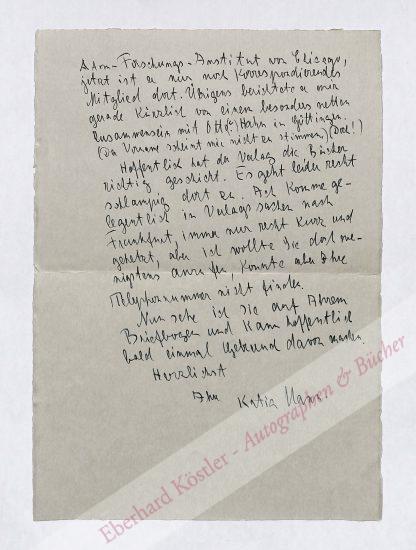 Atom-Forschungs-Institut von Chicago,
jetzt ist er nur noch Korrespondierendes
Mitglied dort. Übrigens berichtete er mir
gerade kürzlich von einem besonders netten
Zusammensein mit Otto(?) Hahn in Göttingen.
(Der Vorname scheint mir nicht zu stimmen) (Doch!)
Hoffentlich hat der Verlag die Bücher
richtig geschickt. Es geht leider recht
schlampig dort zu. Ich komme ge-
legentlich in Verlagssachen nach
Frankfurt, immer nur recht kurz und
gehetzt, aber ich wollte Sie doch we-
nigstens anrufen, konnte aber Ihre
Telephonnummer nicht finden.
Nun sehe ich sie auf Ihrem
Briefbogen und kann hoffentlich
bald einmal Gebrauch davon machen.
Herzlichst
Ihre Katia Mann
Eberhard Köstler - Autographen & Bücher